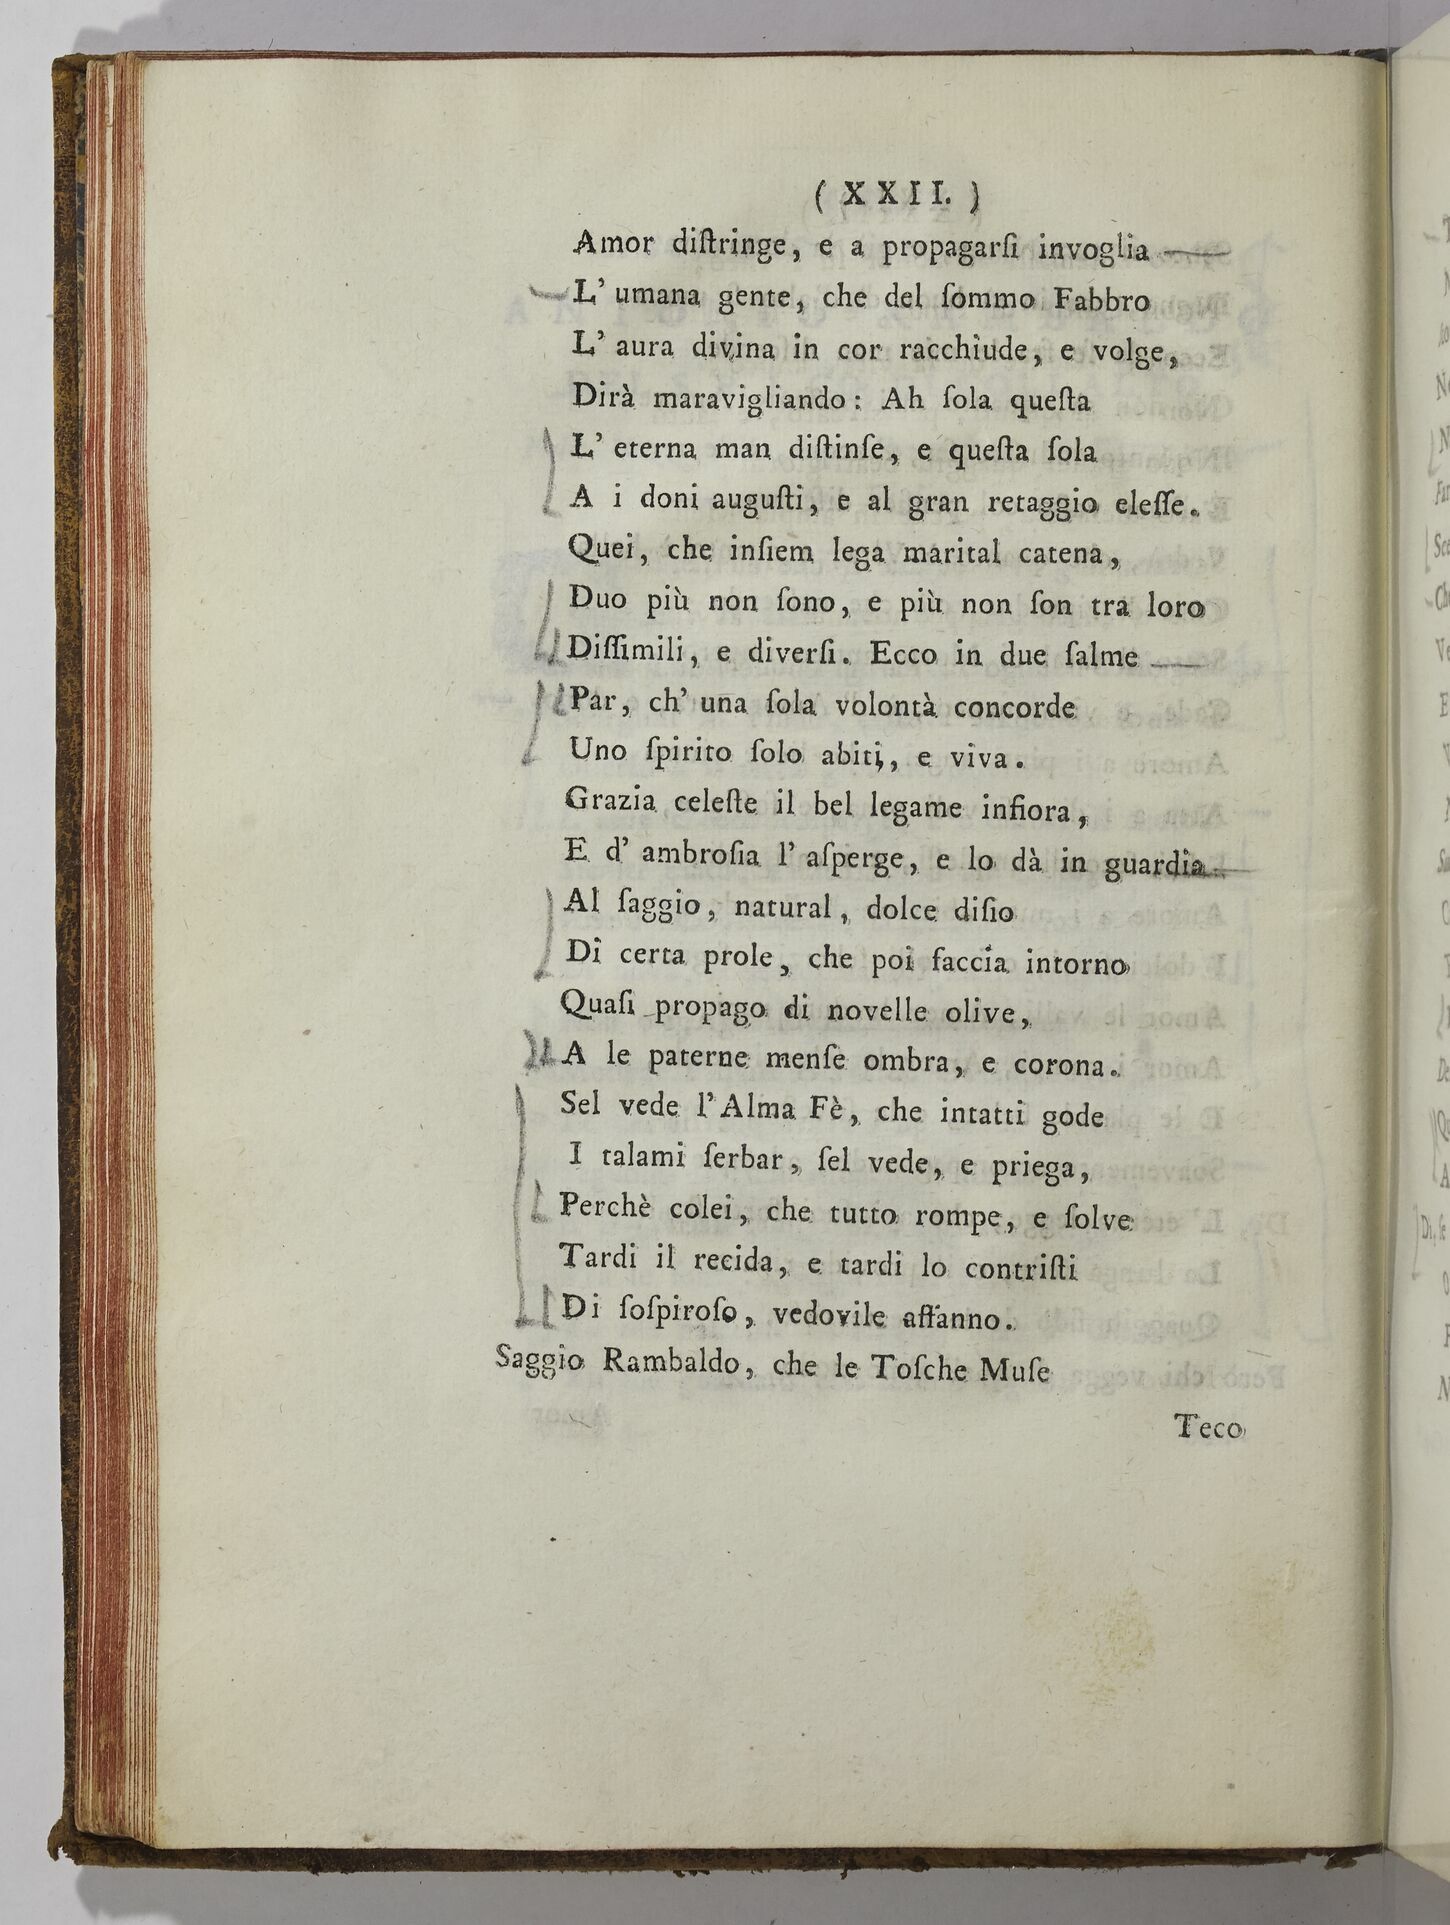 ( XXII. )
Amor diſtringe, e a propagarſi invoglia
L' umana gente, che del ſommo Fabbro
L' aura divina in cor racchiude, e volge,
Dirà maravigliando: Ah ſola queſta
L' eterna man diſtinſe, e queſta ſola
A i doni auguſti, e al gran retaggio eleſſe.
Quei, che inſiem lega marital catena,
Duo più non ſono, e più non ſon tra loro
Diſſimili, e diverſi. Ecco in due ſalme
Par, ch' una ſola volontà concorde
Uno ſpirito ſolo abiti, e viva.
Grazia celeſte il bel legame infiora,
E d' ambroſia l' aſperge, e lo dà in guardia
Al ſaggio, natural, dolce diſio
Di certa prole, che poi faccia intorno
Quaſi propago di novelle olive,
A le paterne menſe ombra, e corona.
Sel vede l'Alma Fè, che intatti gode
I talami ſerbar, ſel vede, e priega,
Perchè colei, che tutto rompe, e ſolve
Tardi il recida, e tardi lo contriſti
Di ſoſpiroſo, vedovile affanno.
Saggio Rambaldo, che le Toſche Muſe
Teco